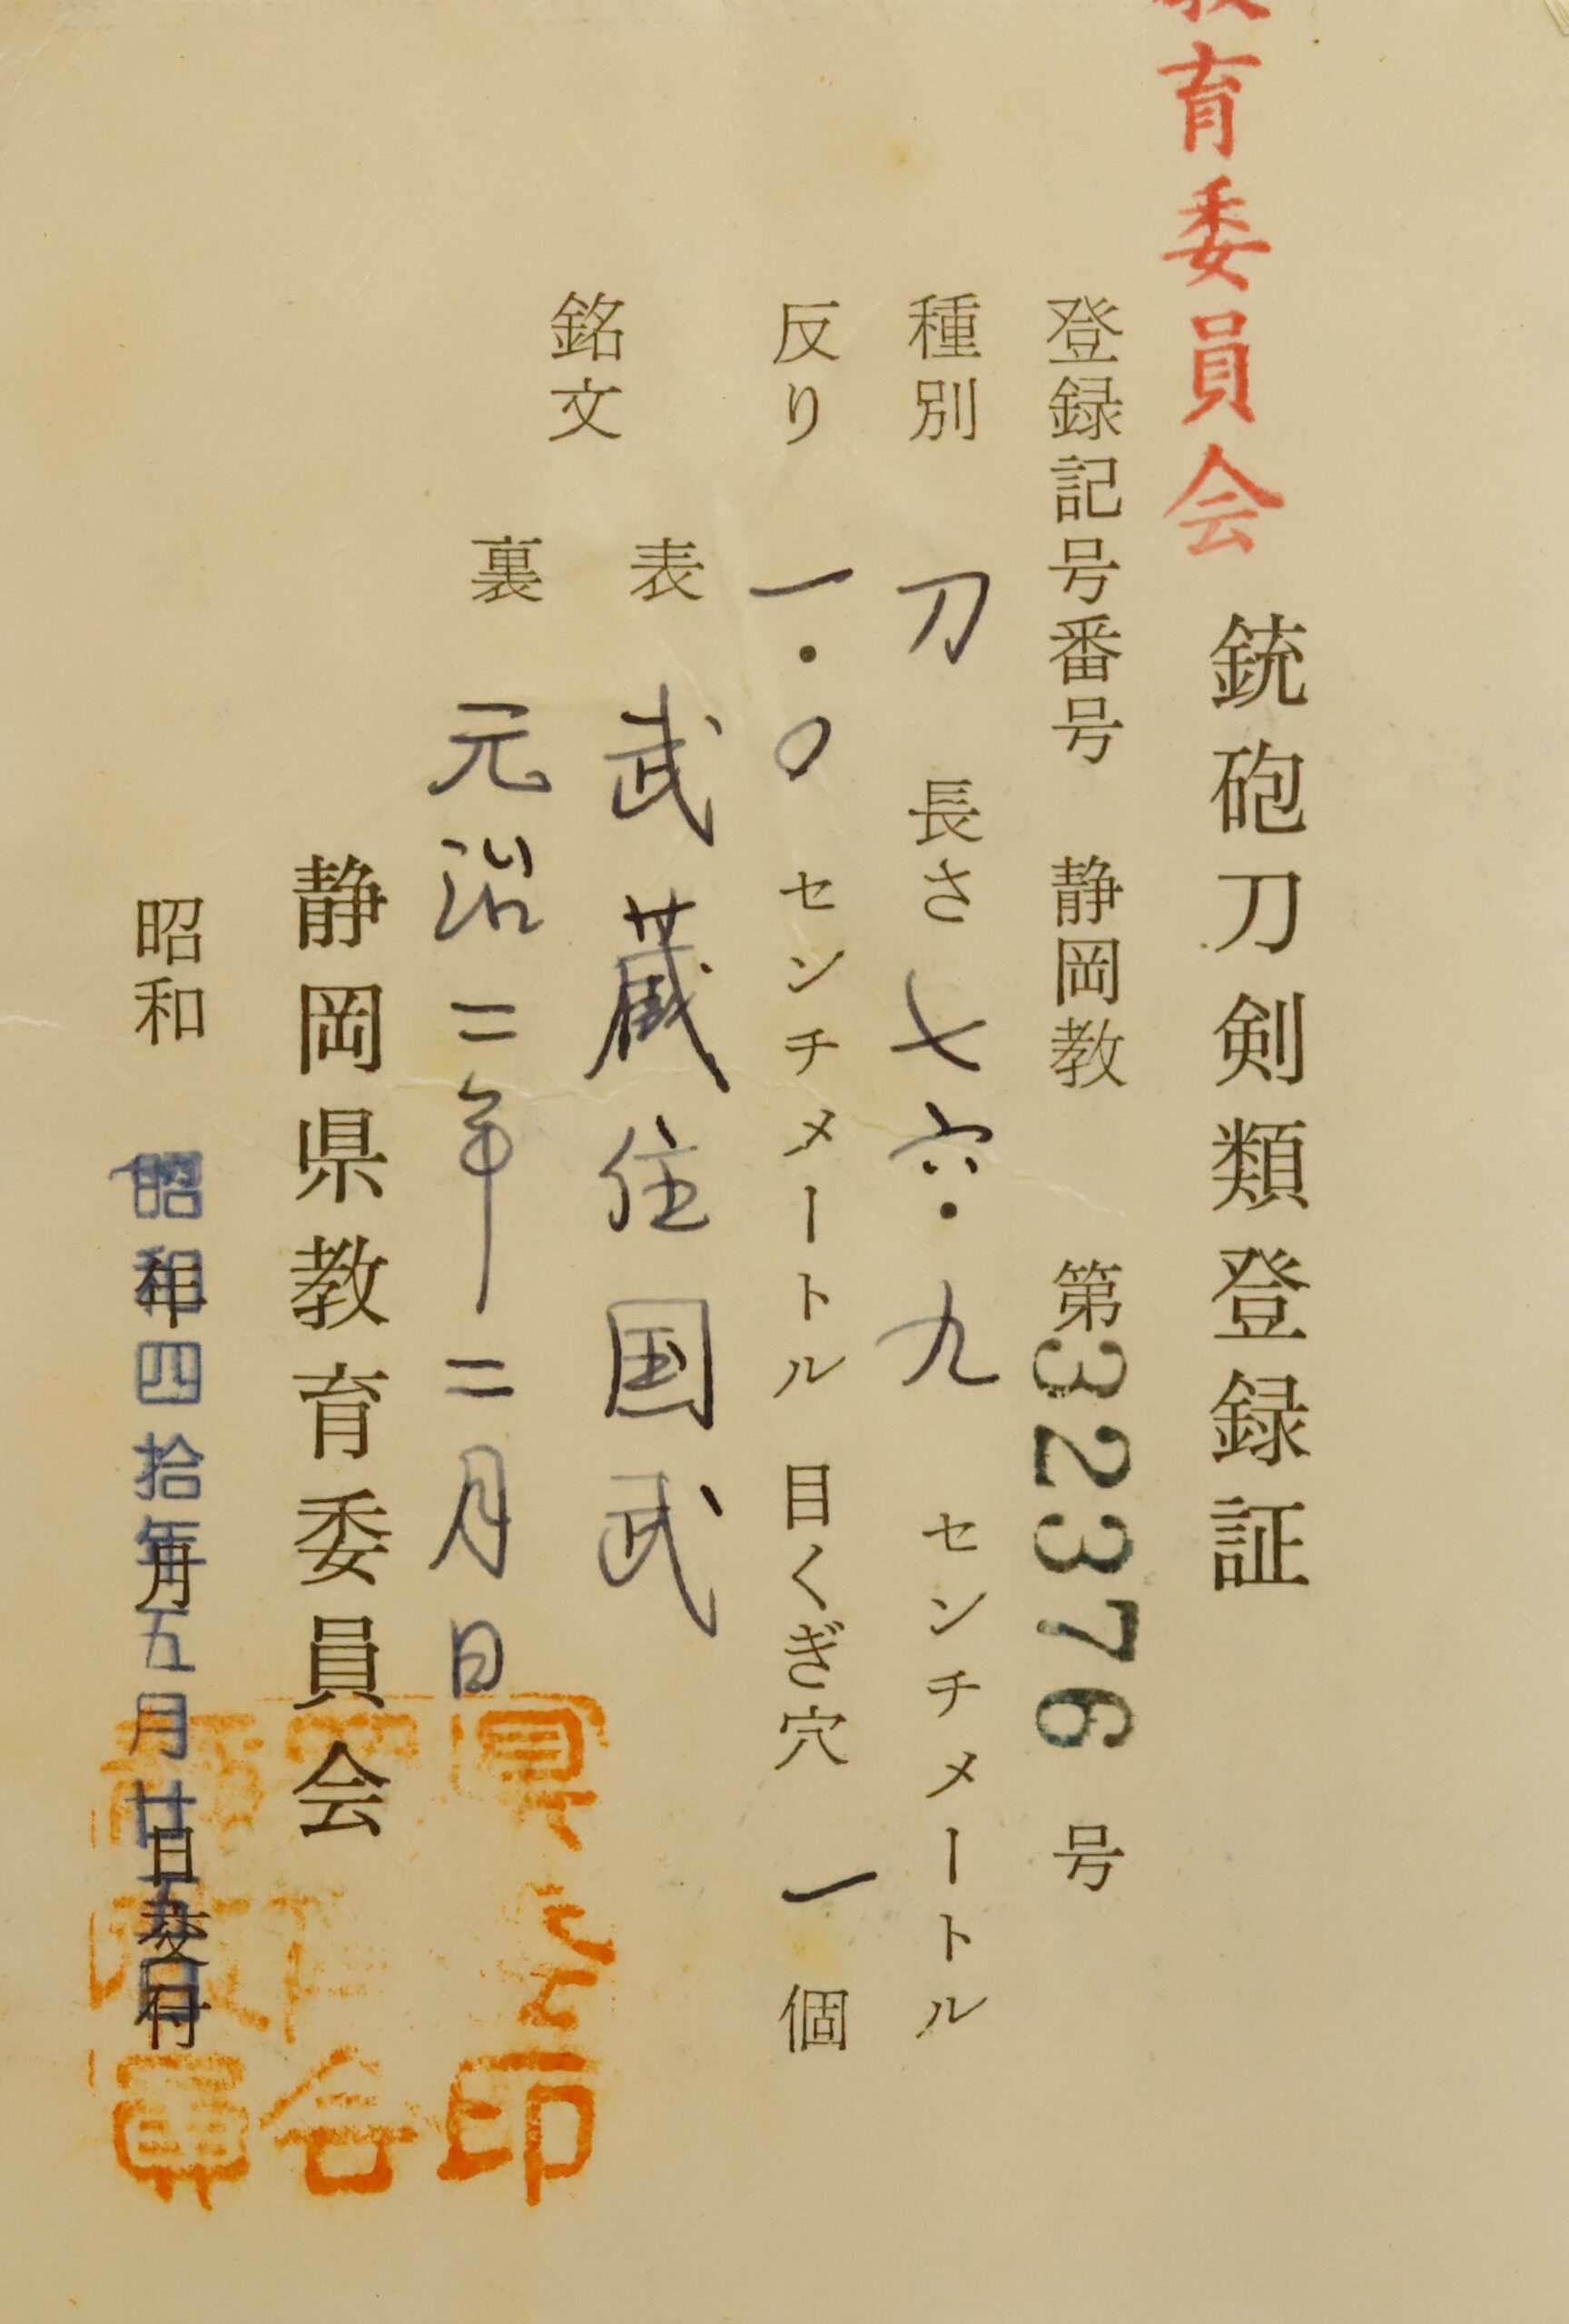 育委員会
銃砲刀剣類登録証
登録記号番号 静岡教 第32376号
種別 刀 長さ 七六・九 センチメートル
反り 一・〇 センチメートル 目くぎ穴 一 個
銘文
表 武蔵住国武
裏 元治二年二月日
静岡県教育委員会
昭和 年 月 日交付
昭和四拾年五月廿五日
会
印